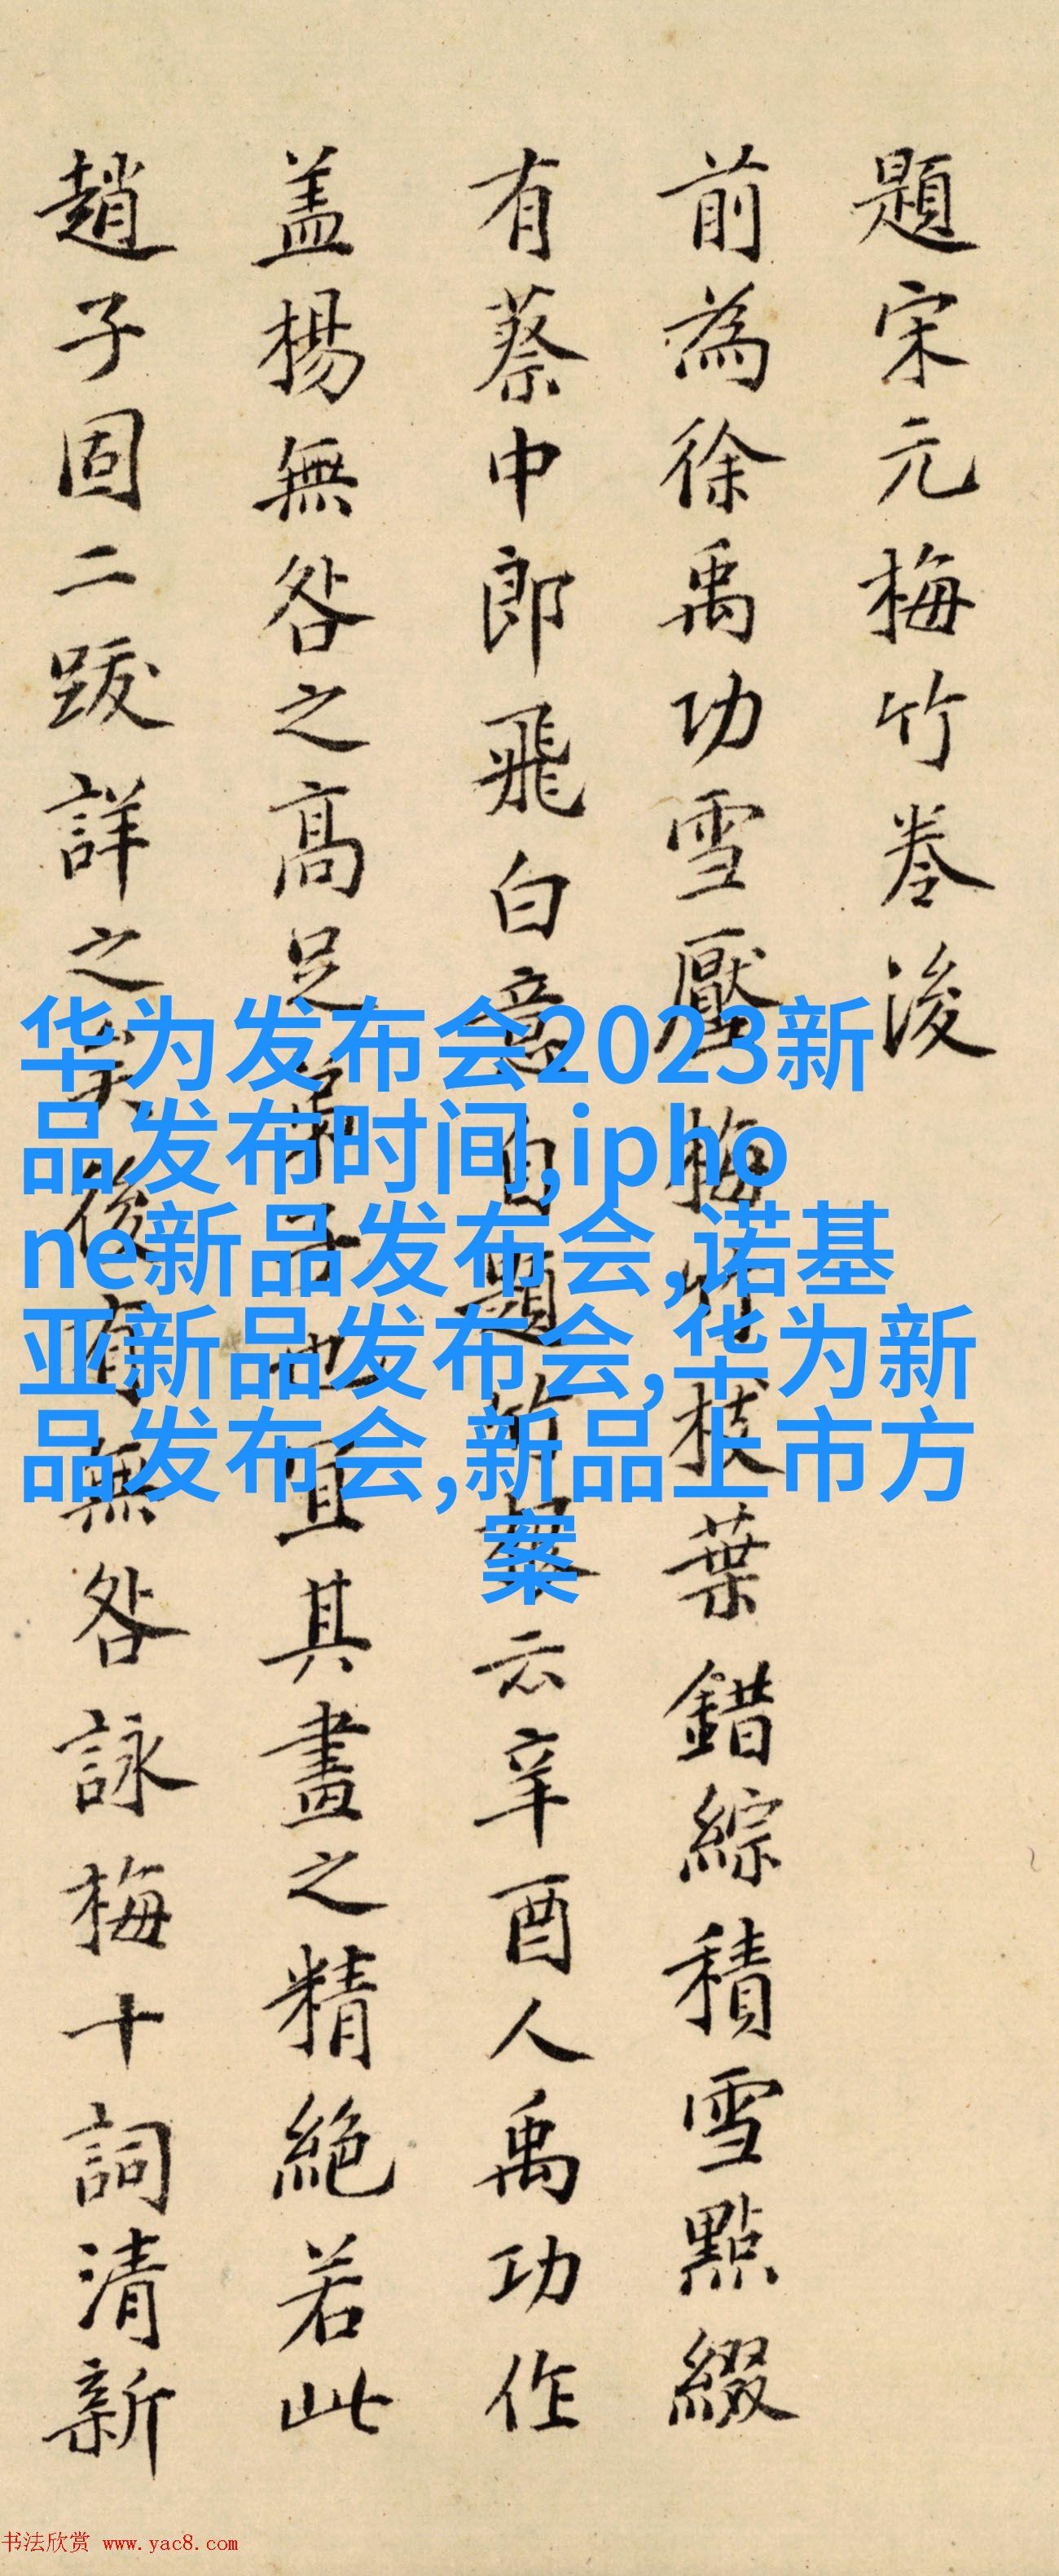 題宋元梅竹卷後
前為徐禹功雪壓梅竹枝葉錯綜積雪點綴
有蔡中郎飛白意自題云辛酉人禹功作
盖楊無咎之高足弟子也且其畫之精絕若此
趙子固二跋詳之矣後有無咎詠梅十詞清新
华为发布会2023新
品发布时间,ipho
ne新品发布会,诺基
亚新品发布会,华为新
品发布会,新品上市方
案
书法欣赏 www.yac8.com